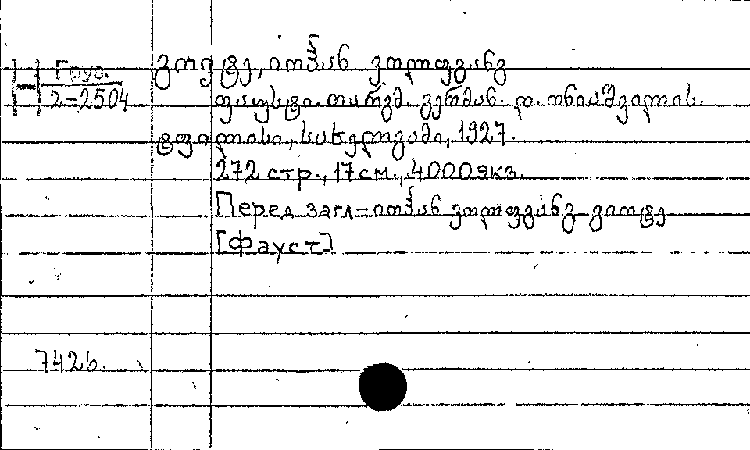 Груз.
2-2504
გოეტე, იოჰან ვოლფგანგ
ფაუსტი. თარგმ. გერმან. დ. ონიაშვილის.
ტფილისი, სახელგამი, 1927.
272 стр., 17 см., 4000 экз.
Перед загл-იოჰან ვოლფგანგ გიოტე
[Фауст]
7426.